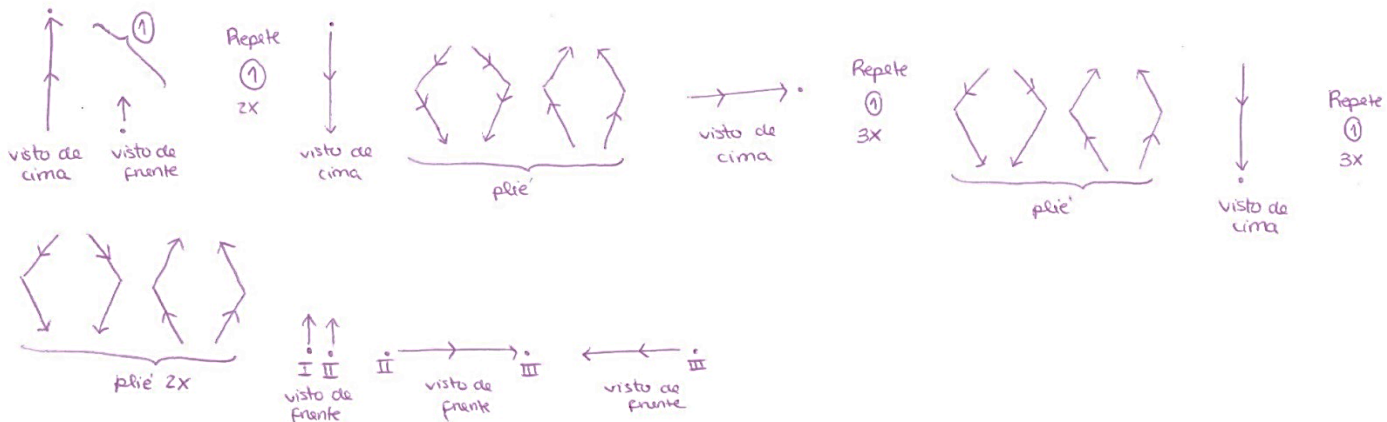 ①
Repete
①
2x
visto de
cima
visto de
frente
visto de
cima
plié
visto de
cima
Repete
①
3x
plié
visto de
cima
Repete
①
3x
plié 2x
I II
visto de
frente
II III
visto de
frente
III
visto de
frente